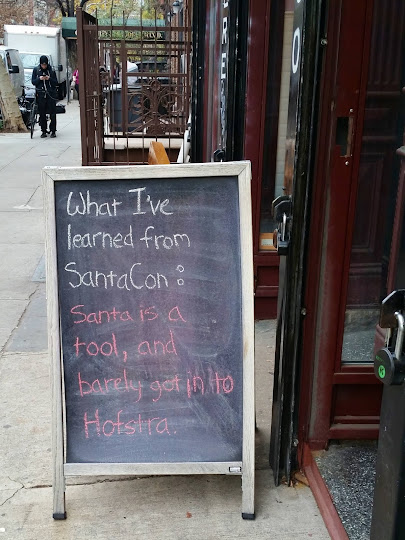 What I've
learned from
SantaCon:
Santa is a
tool, and
barely got in to
Hofstra.